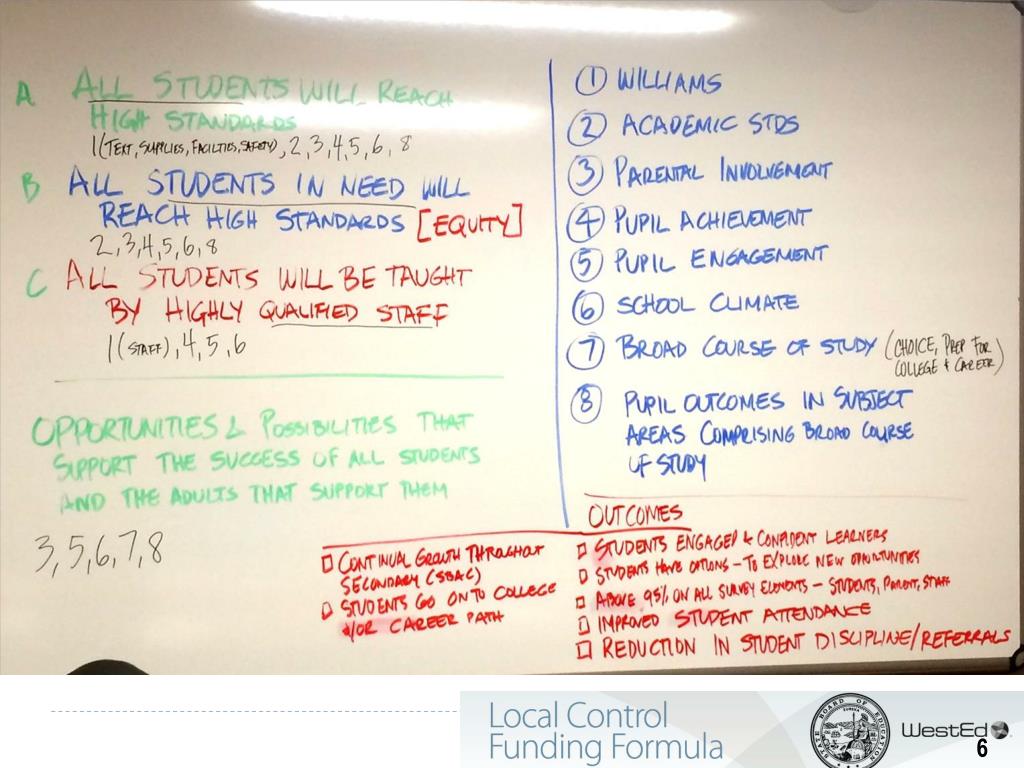 A ALL STUDENTS WILL REACH
HIGH STANDARDS
1(TEXT, SUPPLIES, FACILTIES, SAFETY), 2, 3, 4, 5, 6, 8
B ALL STUDENTS IN NEED WILL
REACH HIGH STANDARDS [EQUITY]
2, 3, 4, 5, 6, 8
C ALL STUDENTS WILL BE TAUGHT
BY HIGHLY QUALIFIED STAFF
1(STAFF), 4, 5, 6
OPPORTUNITIES & POSSIBILITIES THAT
SUPPORT THE SUCCESS OF ALL STUDENTS
AND THE ADULTS THAT SUPPORT THEM
3, 5, 6, 7, 8
1 WILLIAMS
2 ACADEMIC STDS
3 PARENTAL INVOLVEMENT
4 PUPIL ACHIEVEMENT
5 PUPIL ENGAGEMENT
6 SCHOOL CLIMATE
7 BROAD COURSE OF STUDY (CHOICE, PREP FOR
COLLEGE & CAREER)
8 PUPIL OUTCOMES IN SUBJECT
AREAS COMPRISING BROAD COURSE
OF STUDY
OUTCOMES
CONTINUAL GROWTH THROUGHOUT
SECONDARY (SBAC)
STUDENTS GO ON TO COLLEGE
&/OR CAREER PATH
STUDENTS ENGAGED & CONFIDENT LEARNERS
STUDENTS HAVE OPTIONS – TO EXPLORE NEW OPPORTUNITIES
ABOVE 95% ON ALL SURVEY ELEMENTS – STUDENTS, PARENT, STAFF
IMPROVED STUDENT ATTENDANCE
REDUCTION IN STUDENT DISCIPLINE/REFERRALS
Local Control
Funding Formula
STATE BOARD OF EDUCATION
WestEd
6